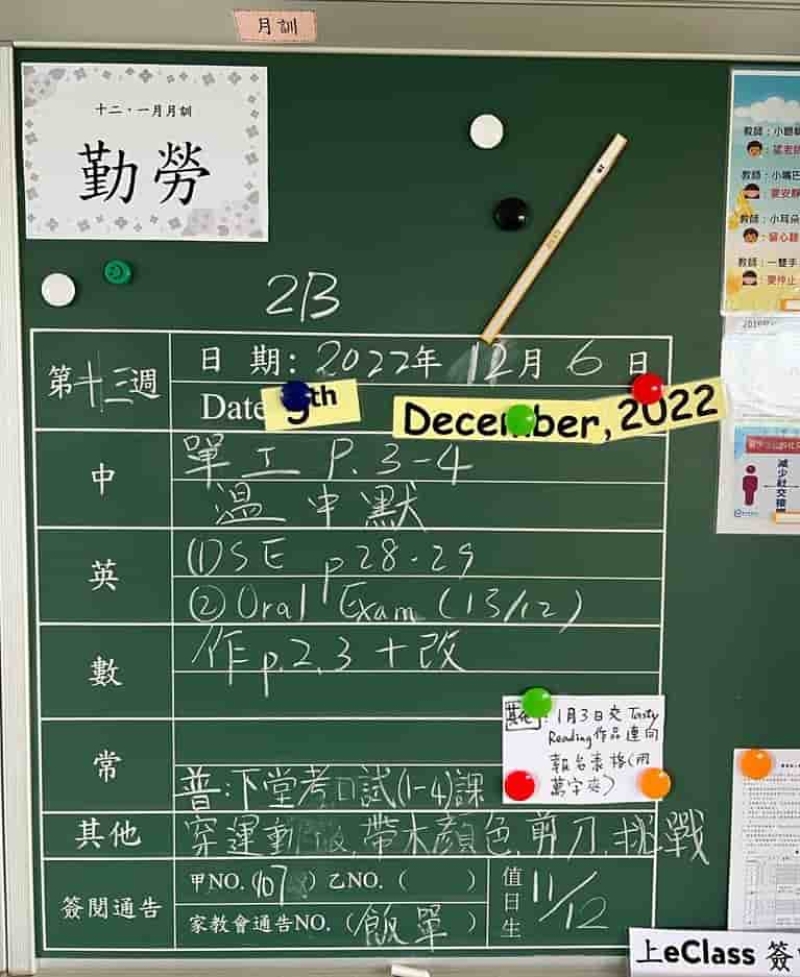 月訓
十二・一月月訓
勤勞
2B
第十三週
日 期: 2022年 12月 6 日
Date
th December, 2022
中
單工 P.3-4
溫中默
英
(1) SE p28-29
② Oral Exam (13/12)
數
作 p.2,3 + 改
常
普:下堂考口試(1-4)課
其他:1月3日交 Tasty
Reading作品連同
報名表格(用
萬字夾)
其他
穿運動服,帶木顏色,剪刀,挑戰
簽閱通告
甲NO.(107) 乙NO.( )
家教會通告NO.(飯單)
值日生
11/12
教師:小嘴巴
教師:小耳朵
教師:一雙手
減少社交接
上eClass 簽